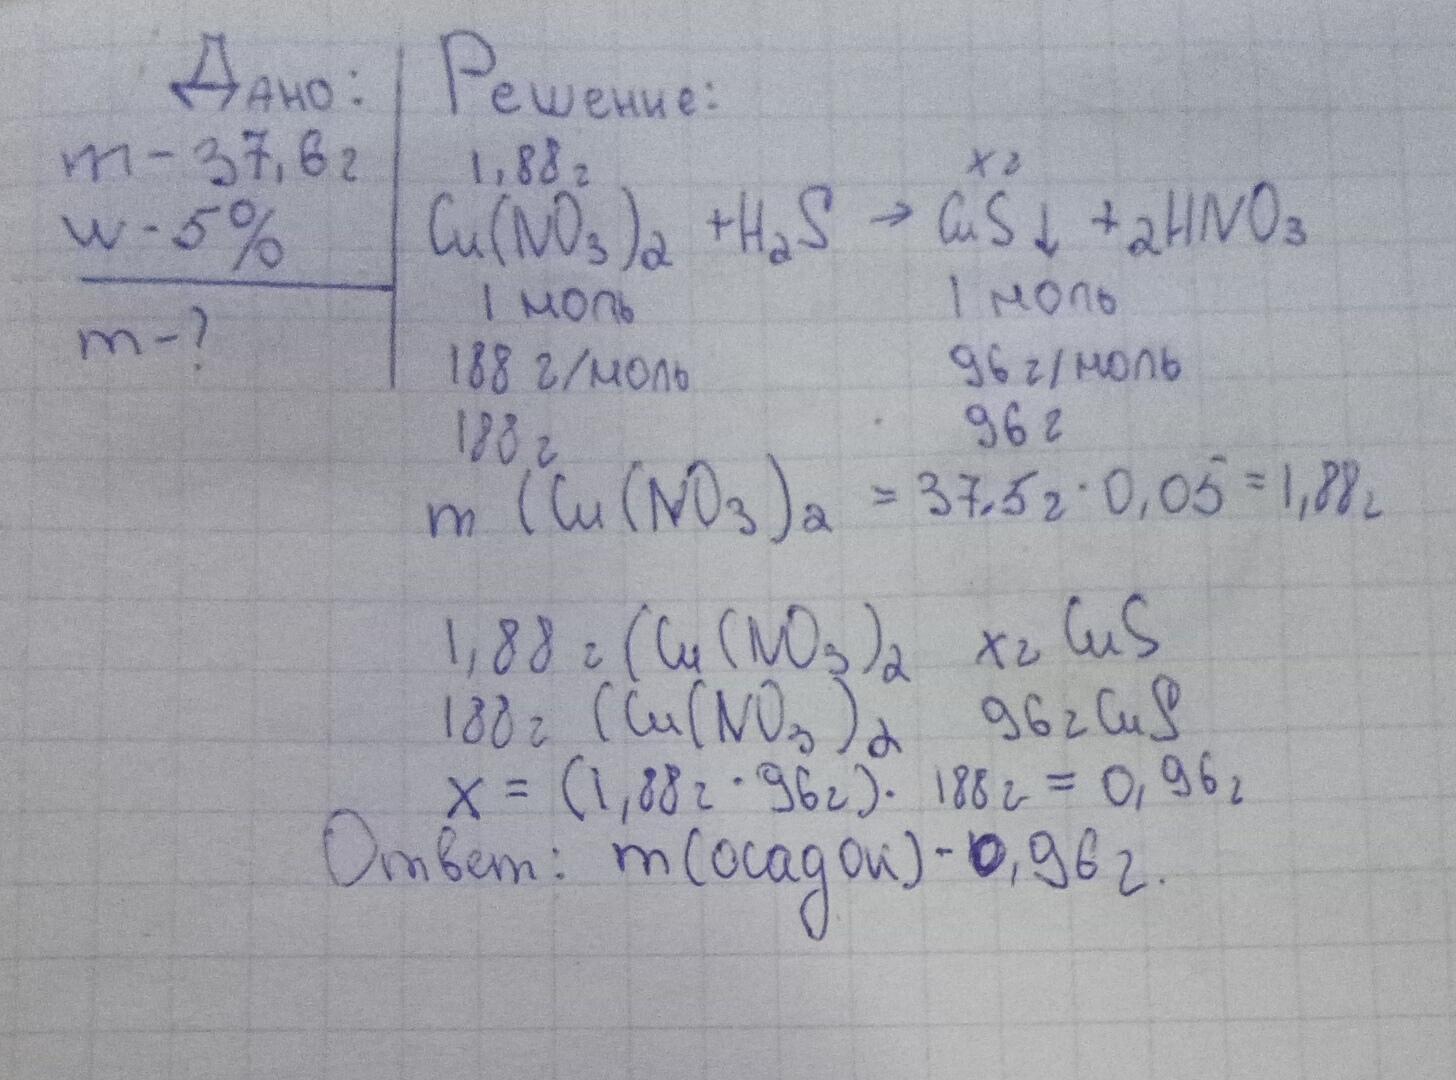 Дано:
m - 37,6 г
w - 5%
m - ?
Решение:
1,88 г x г
Cu(NO3)2 + H2S → CuS↓ + 2HNO3
1 моль 1 моль
188 г/моль 96 г/моль
188 г 96 г
m (Cu(NO3)2 = 37.5 г · 0,05 = 1,88 г
1,88 г (Cu(NO3)2 x г CuS
188 г (Cu(NO3)2 96 г CuS
x = (1,88 г · 96 г) · 188 г = 0,96 г
Ответ: m(осадок) - 0,96 г.